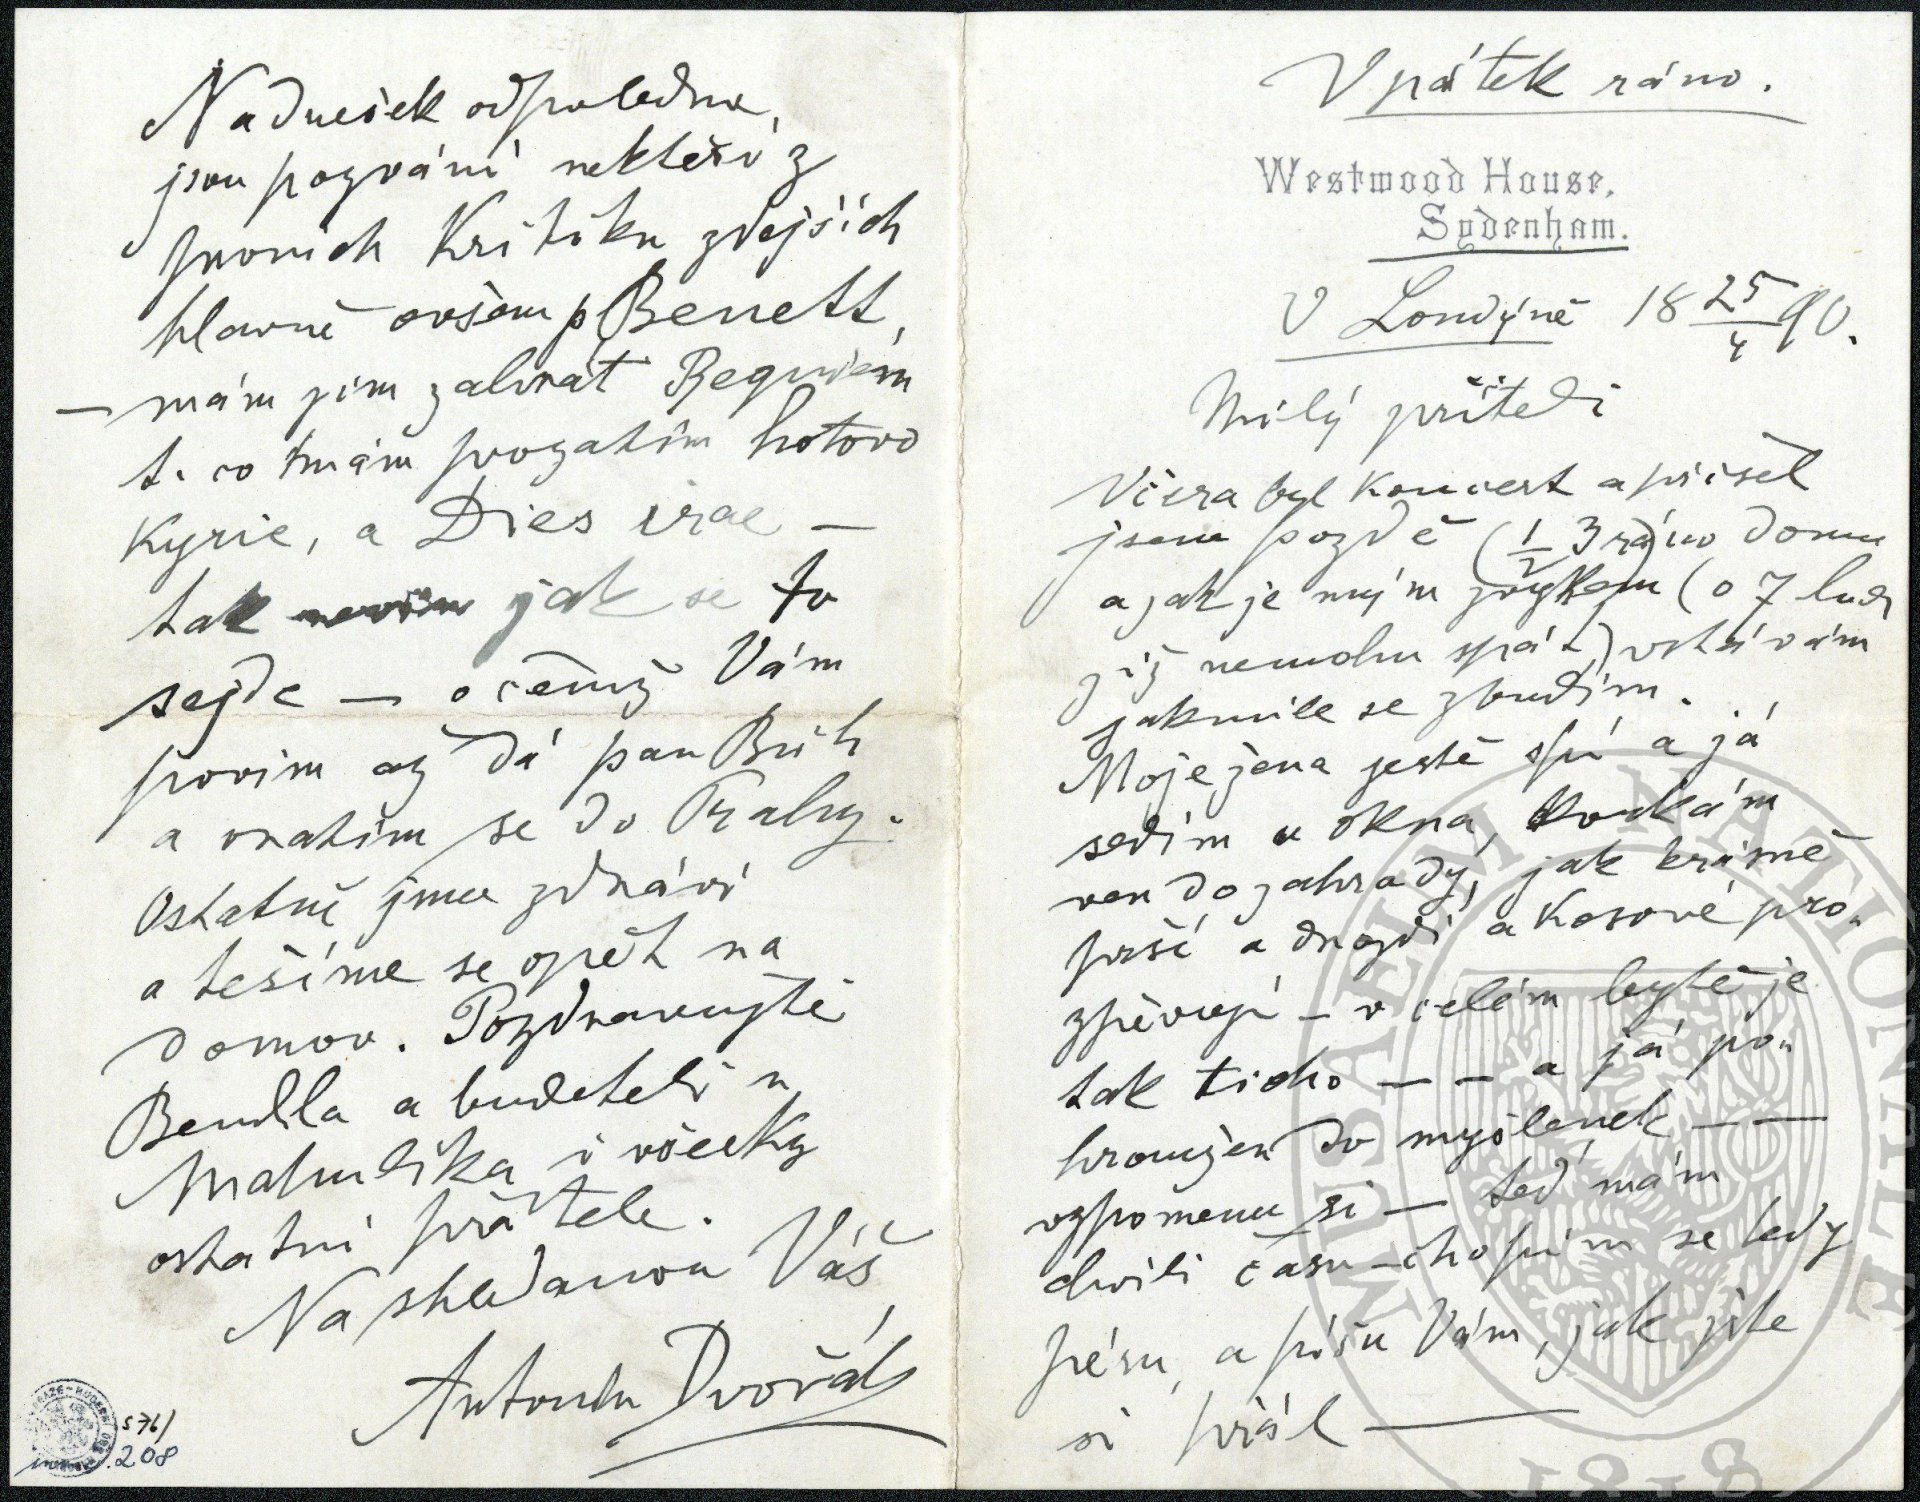 V pátek ráno.
Westwood House,
Sydenham.
V Londýně 18 25/4 90.
Milý příteli
Včera byl koncert a přišel
jsem pozdě (½ 3 ráno domu
a jak je mým zvykem (o 7 hod
již nemohu spát) vstávám
jakmile se zbudím.
Moje žena ještě spí a já
sedím u okna, koukám
ven do zahrady, jak krásně
prší a drozdi a kosové pro„
zpěvují – v celém bytě je
tak ticho – – a já po„
hroužen do myšlenek – –
vzpomenu si – teď mám
chvíli času – chopím se tedy
péru, a píšu Vám, jak jste
si přál —
Na dnešek odpoledne,
jsou pozváni někteří z
prvních Kritiku zdejších
hlavně ovšem p Benett,
– mám jim zahrát Requiem
t. co mám prozatím hotovo
Kyrie, a Dies irae –
tak nevím jak se to
sejde – o čemž Vám
povím až dá pan Bůh
a vrátím se do Prahy.
Ostatně jsme zdrávi
a tešíme se opět na
domov. Pozdravujte
Bendla a budeteli u
Mahulíka i všecky
ostatní přátele.
Na shledanou Váš
Antonín Dvořák
S 76/
208
MUSAEUM NATIONALE
1818